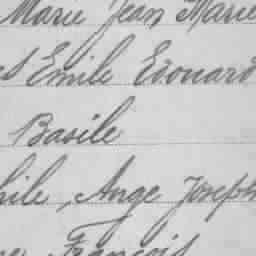 Marie Jean Marie
Emile Edouard
Basile
hile, Ange Joseph
François